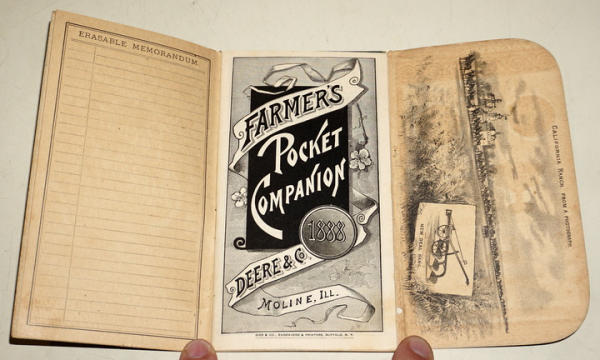 ERASABLE MEMORANDUM.
FARMER'S
POCKET
COMPANION
1888
DEERE & CO.
MOLINE, ILL.
GIES & CO., ENGRAVERS & PRINTERS, BUFFALO, N. Y.
CALIFORNIA RANCH, FROM A PHOTOGRAPH.
NEW DEAL GANG.